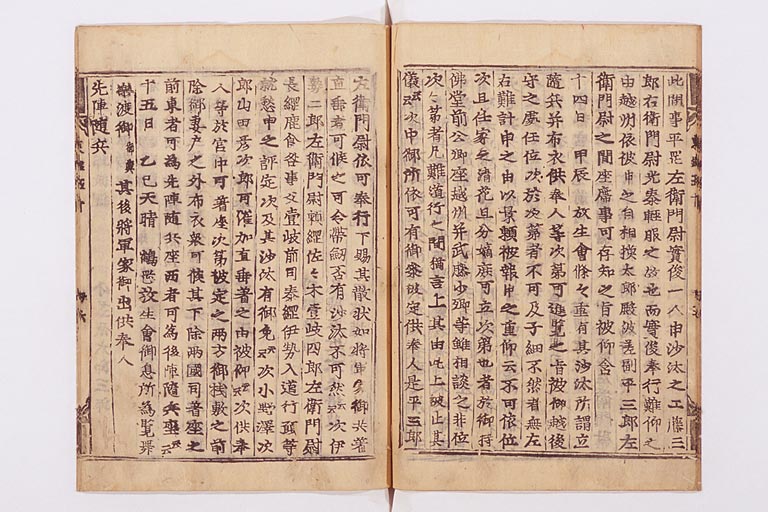 此間事平岡左衛門尉實俊一人申沙汰之工藤三
郎右衛門尉光泰軽服之故也而實俊奉行難仰之
由越州依被申之自相模太郎殿被差副平三郎左
衛門尉之間座席事可存知之旨被仰含
十四日 甲辰 放生會條々重有其沙汰所謂立
随兵并布衣供奉人等次第可進覧之旨被仰越後
守之處任位次於次第者不可及子細不然者無左
右難計申之由以景頼被報申之重仰云不可依位
次且任家之清花且分嫡庶可立次第也者於御持
佛堂前公卿座越州并武藤少卿等雖相談之非位
次之第者凡難道行之間猶言上其由此上被止其
儀云々次中御所依可有御参被定供奉人是平三郎
左衛門尉依可奉行下賜其散状如将軍家御共著
直垂者可候之可令帶釼否有沙汰不可然云々次伊
勢二郎左衛門尉頼綱佐々木壹岐四郎左衛門尉
長綱鹿食咎事又壹岐前司泰綱伊勢入道行願等
就愁申之評定次及其沙汰有御免云々次小野澤次
郎山田彦次郎可催加直垂著之由被仰云々次供奉
人等於宮中可著座次第被定之兩方御棧敷之前
除御妻戸之外布衣衆可候其下除兩國司著座之
前東者可為先陣随兵座西者可為後陣随兵座云々
十五日 乙巳天晴 鶴岡放生會御息所為覧舞
樂渡御 御輿 其後將軍家御出供奉人
先陣随兵